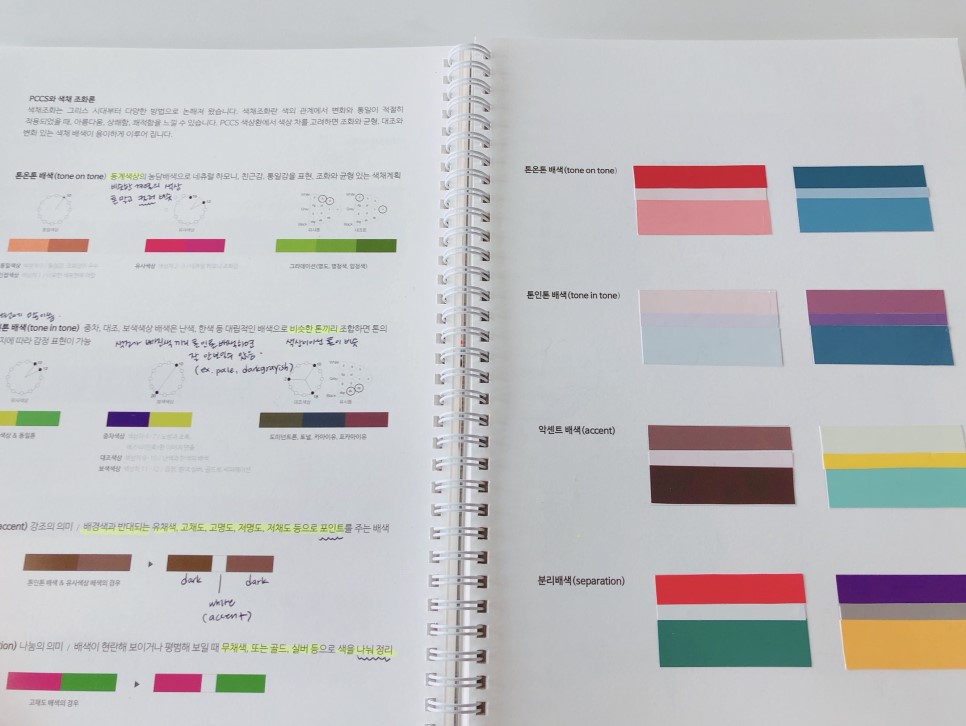 PCCS와 색채 조화론
색채조화는 그리스 시대부터 다양한 방법으로 논해져 왔습니다. 색채조화란 색의 관계에서 변화와 통일이 적절히
적용되었을 때, 아름다움, 상쾌함, 쾌적함을 느낄 수 있습니다. PCCS 색상환에서 색상 차를 고려하면 조화와 균형, 대조와
변화 있는 색채 배색이 용이하게 이루어 집니다.
톤온톤 배색(tone on tone) 동계색상의 농담배색으로 내츄럴 하모니, 친근감, 통일감을 표현, 조화와 균형 있는 색채계획
비슷한 계열의 색상
톤 말고 컬러 비슷
유사색상
그라데이션(명도, 명청색, 암청색)
톤 배색(tone in tone) 중차, 대조, 보색색상 배색은 난색, 한색 등 대립적인 배색으로 비슷한 톤끼리 조합하면 톤의
지에 따라 감정 표현이 가능
잘 안보일수 있음
(ex. pale, darkgrayish)
색상이어도 톤이 비슷
색상 & 동일톤
중차색상
대조색상
보색색상
도미넌트톤, 토널, 카마이유, 포카마이유
accent) 강조의 의미 / 배경색과 반대되는 유채색, 고채도, 고명도, 저명도, 저채도 등으로 포인트를 주는 배색
톤인톤 배색 & 유사색상 배색의 경우
dark
dark
white
(accent)
tion) 나눔의 의미 / 배색이 현란해 보이거나 평범해 보일 때 무채색, 또는 골드, 실버 등으로 색을 나눠 정리
고채도 배색의 경우
톤온톤 배색(tone on tone)
톤인톤 배색(tone in tone)
악센트 배색(accent)
분리배색(separation)